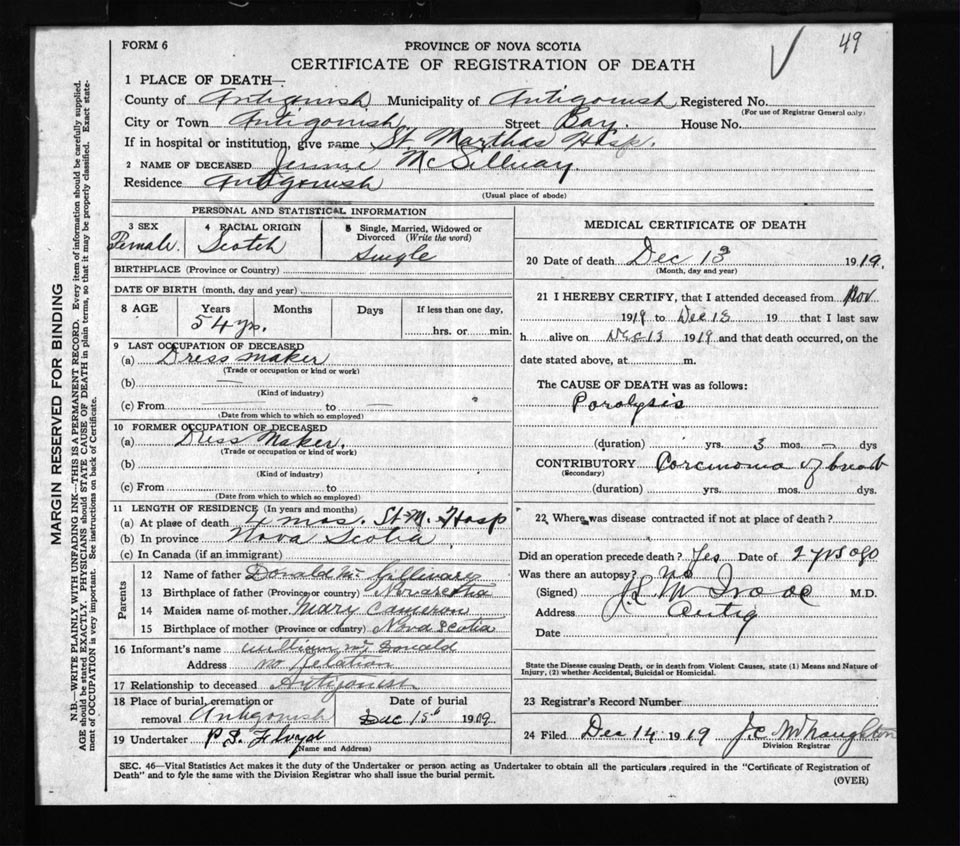 49
FORM 6
PROVINCE OF NOVA SCOTIA
CERTIFICATE OF REGISTRATION OF DEATH
1 PLACE OF DEATH—
County of Antigonish Municipality of Antigonish Registered No.
(For use of Registrar General only)
City or Town Antigonish Street Bay. House No.
If in hospital or institution, give name St. Marthas Hosp.
2 NAME OF DECEASED Jennie McGillivray.
Residence Antigonish
(Usual place of abode)
PERSONAL AND STATISTICAL INFORMATION
3 SEX 4 RACIAL ORIGIN 5 Single, Married, Widowed or Divorced (Write the word)
Female. Scotch Single
BIRTHPLACE (Province or Country)
DATE OF BIRTH (month, day and year)
8 AGE Years Months Days If less than one day,
54 yrs. hrs. or min.
9 LAST OCCUPATION OF DECEASED
(a) Dress maker
(Trade or occupation or kind or work)
(b) —
(Kind of industry)
(c) From — to —
(Date from which to which so employed)
10 FORMER OCCUPATION OF DECEASED
(a) Dress Maker.
(Trade or occupation or kind of work)
(b)
(Kind of industry)
(c) From to
(Date from which to which so employed)
11 LENGTH OF RESIDENCE (In years and months)
(a) At place of death 4 mos. St. M. Hosp
(b) In province Nova Scotia
(c) In Canada (if an immigrant)
Parents
12 Name of father Donald Mc Gillivary
13 Birthplace of father (Province or country) Nova Scotia
14 Maiden name of mother Mary Cameron
15 Birthplace of mother (Province or country) Nova Scotia
16 Informant's name William Mc Donald
Address no relation
17 Relationship to deceased Antigonish
18 Place of burial, cremation or removal Antigonish Date of burial Dec 15th 1919
19 Undertaker P.S. Floyd
(Name and Address)
MEDICAL CERTIFICATE OF DEATH
20 Date of death Dec 13 1919.
(Month, day and year)
21 I HEREBY CERTIFY, that I attended deceased from Nov
1919 to Dec 13 19 that I last saw
h alive on Dec 13 1919 and that death occurred, on the
date stated above, at m.
The CAUSE OF DEATH was as follows:
Paralysis
(duration) yrs. 3 mos. — dys
CONTRIBUTORY Carcinoma of breast
(Secondary)
(duration) yrs. mos. dys.
22 Where was disease contracted if not at place of death?
Did an operation precede death? Yes Date of 2 yrs ago
Was there an autopsy? no
(Signed) M.D.
Address Antig
Date
State the Disease causing Death, or in death from Violent Causes, state (1) Means and Nature of
Injury, (2) whether Accidental, Suicidal or Homicidal.
23 Registrar's Record Number
24 Filed Dec 14 1919 J.C. McNaughton
Division Registrar
SEC. 46—Vital Statistics Act makes it the duty of the Undertaker or person acting as Undertaker to obtain all the particulars required in the "Certificate of Registration of
Death" and to fyle the same with the Division Registrar who shall issue the burial permit.
(OVER)
MARGIN RESERVED FOR BINDING
N.B.—WRITE PLAINLY WITH UNFADING INK—THIS IS A PERMANENT RECORD. Every item of information should be carefully supplied.
AGE should be stated EXACTLY. PHYSICIANS should STATE CAUSE OF DEATH in plain terms, so that it may be properly classified. Exact state-
ment of OCCUPATION is very important. See instructions on back of Certificate.